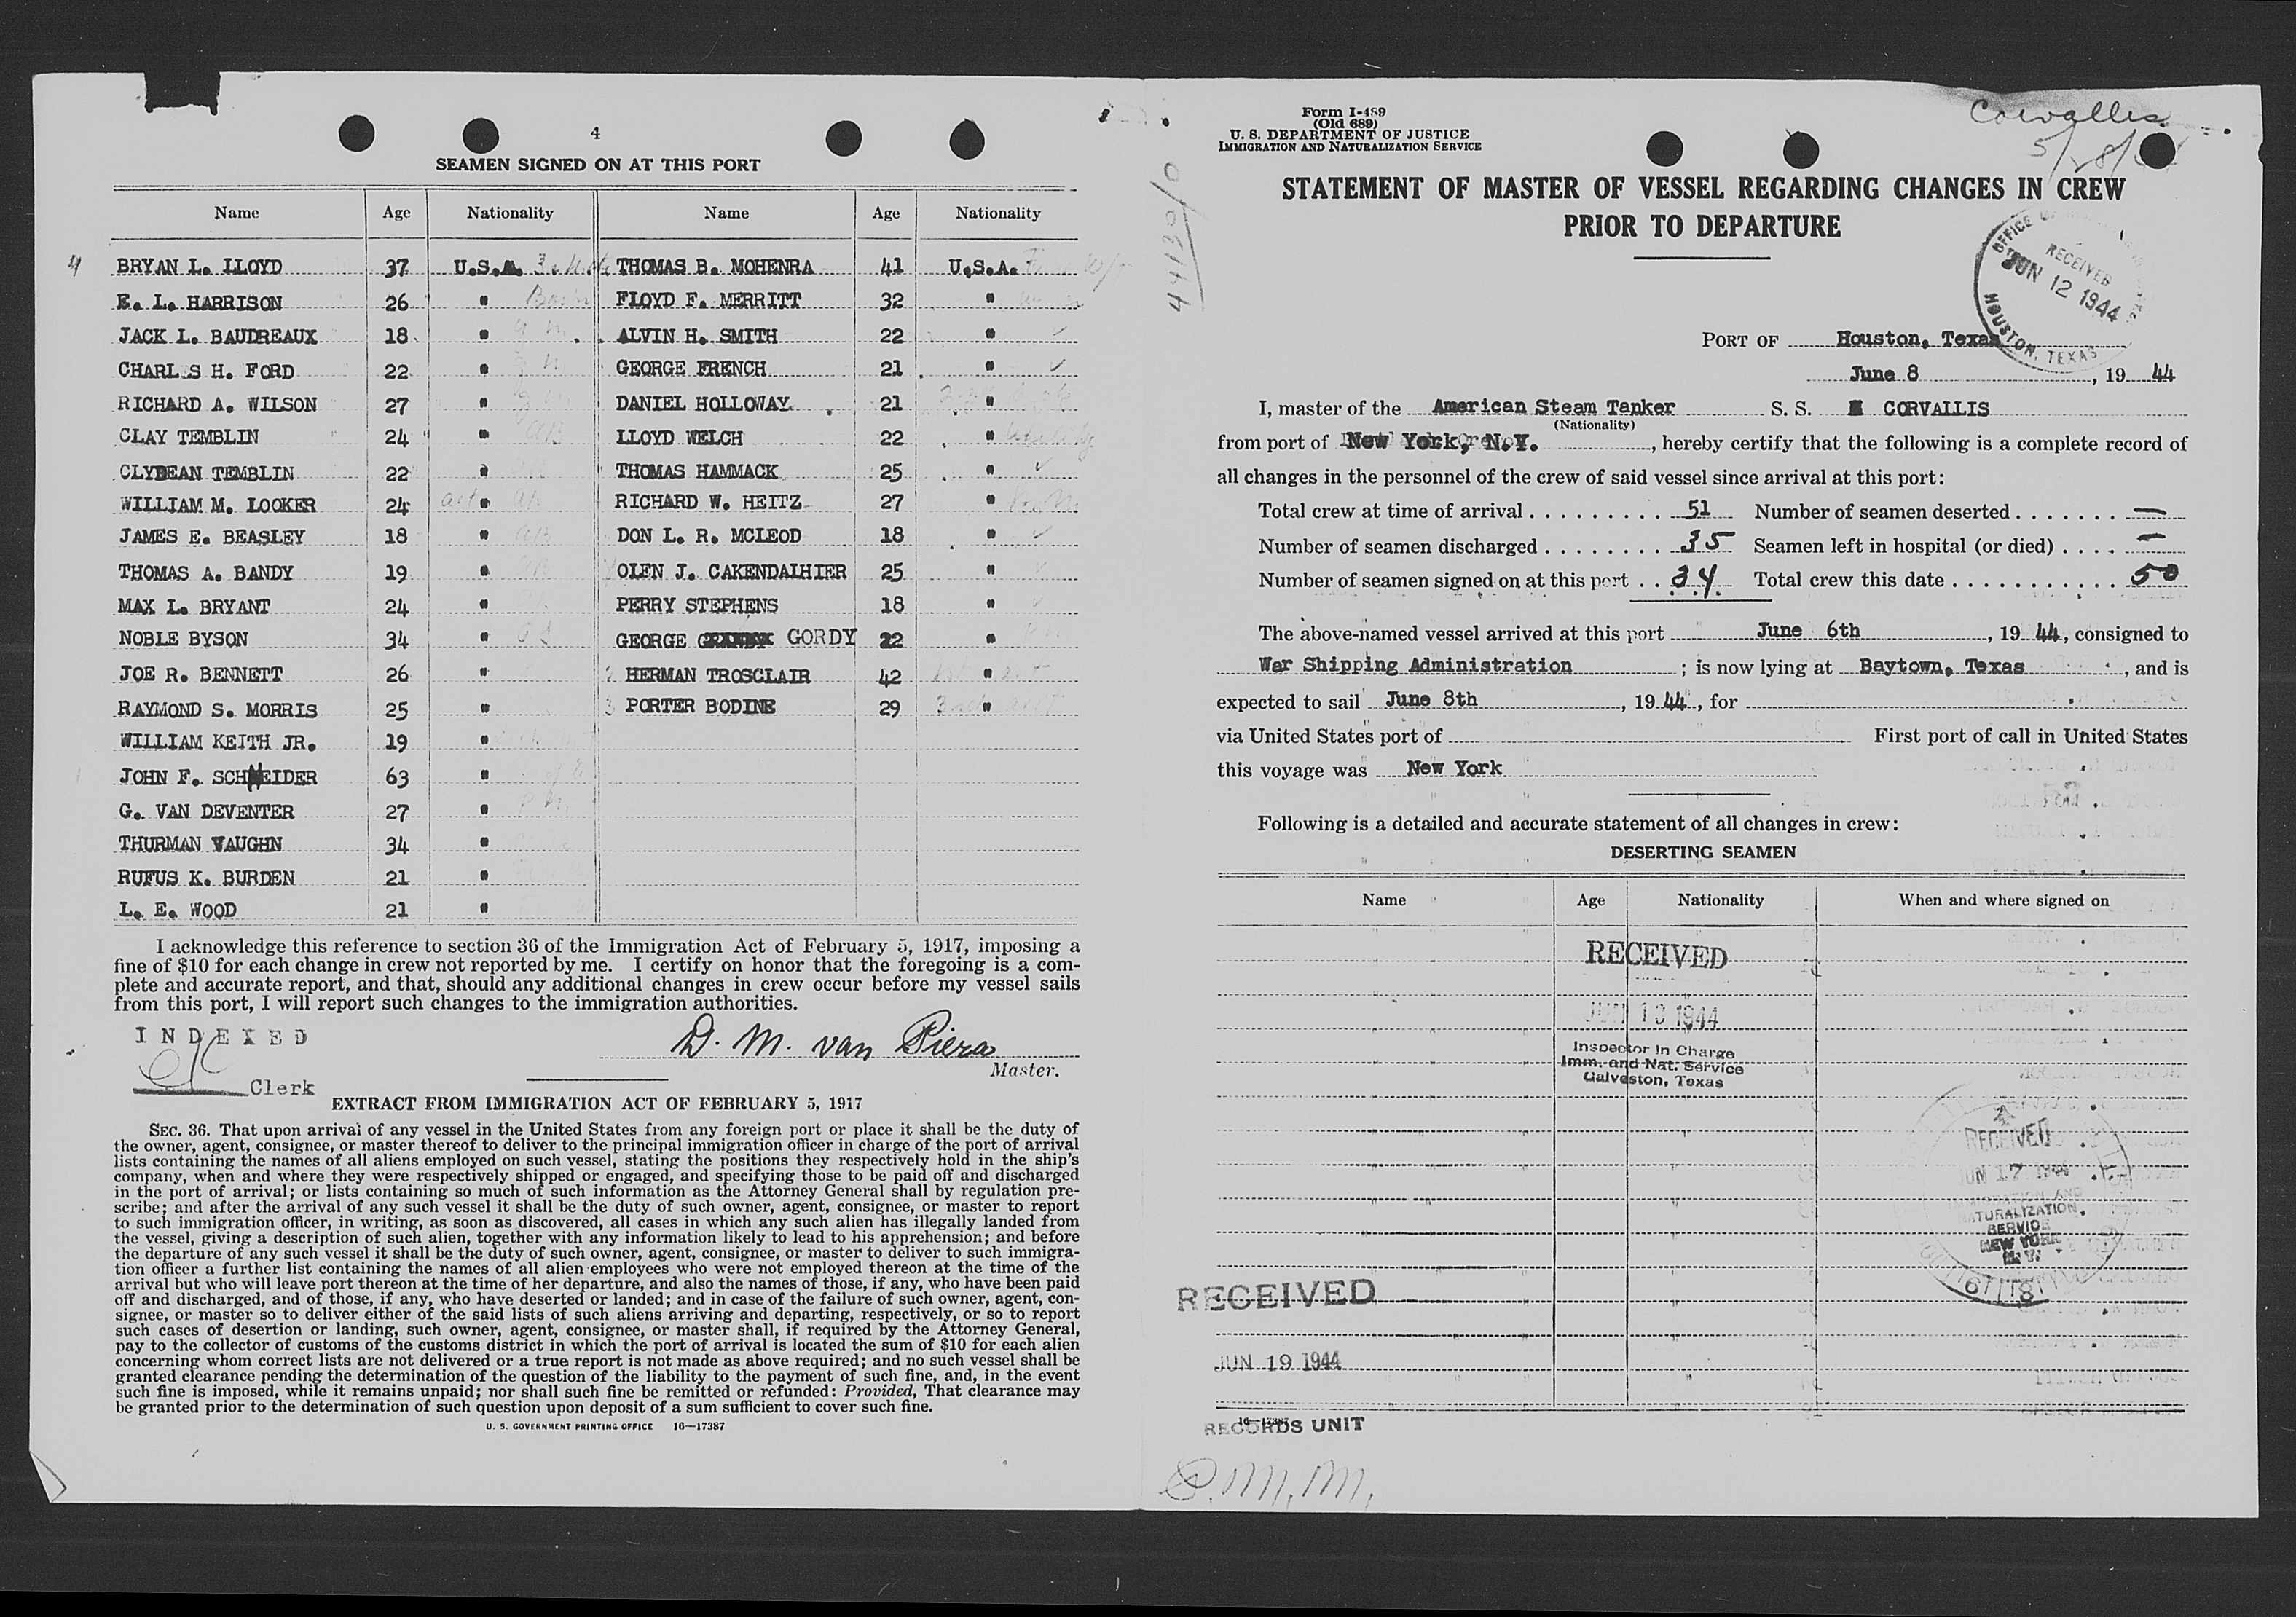 4
SEAMEN SIGNED ON AT THIS PORT
Name Age Nationality Name Age Nationality
BRYAN L. LLOYD 37 U.S.A. THOMAS B. MOHENRA 41 U.S.A.
E. L. HARRISON 26 " FLOYD F. MERRITT 32 "
JACK L. BAUDREAUX 18 " ALVIN H. SMITH 22 "
CHARL S H. FORD 22 " GEORGE FRENCH 21 "
RICHARD A. WILSON 27 " DANIEL HOLLOWAY 21 "
CLAY TEMBLIN 24 " LLOYD WELCH 22 "
CLYDEAN TEMBLIN 22 " THOMAS HAMMACK 25 "
WILLIAM M. LOOKER 24 " RICHARD W. HEITZ 27 "
JAMES E. BEASLEY 18 " DON L. R. MCLEOD 18 "
THOMAS A. BANDY 19 " OLEN J. CAKENDALHIER 25 "
MAX L. BRYANT 24 " PERRY STEPHENS 18 "
NOBLE BYSON 34 " GEORGE GORDY 22 "
JOE R. BENNETT 26 " HERMAN TROSCLAIR 42 "
RAYMOND S. MORRIS 25 " PORTER BODINE 29 "
WILLIAM KEITH JR. 19 "
JOHN F. SCHNEIDER 63 "
G. VAN DEVENTER 27 "
THURMAN VAUGHN 34 "
RUFUS K. BURDEN 21 "
L. E. WOOD 21 "
I acknowledge this reference to section 36 of the Immigration Act of February 5, 1917, imposing a
fine of $10 for each change in crew not reported by me. I certify on honor that the foregoing is a com-
plete and accurate report, and that, should any additional changes in crew occur before my vessel sails
from this port, I will report such changes to the immigration authorities.
INDEXED
D. M. van Piera
Master.
Clerk
EXTRACT FROM IMMIGRATION ACT OF FEBRUARY 5, 1917
SEC. 36. That upon arrival of any vessel in the United States from any foreign port or place it shall be the duty of
the owner, agent, consignee, or master thereof to deliver to the principal immigration officer in charge of the port of arrival
lists containing the names of all aliens employed on such vessel, stating the positions they respectively hold in the ship's
company, when and where they were respectively shipped or engaged, and specifying those to be paid off and discharged
in the port of arrival; or lists containing so much of such information as the Attorney General shall by regulation pre-
scribe; and after the arrival of any such vessel it shall be the duty of such owner, agent, consignee, or master to report
to such immigration officer, in writing, as soon as discovered, all cases in which any such alien has illegally landed from
the vessel, giving a description of such alien, together with any information likely to lead to his apprehension; and before
the departure of any such vessel it shall be the duty of such owner, agent, consignee, or master to deliver to such immigra-
tion officer a further list containing the names of all alien employees who were not employed thereon at the time of the
arrival but who will leave port thereon at the time of her departure, and also the names of those, if any, who have been paid
off and discharged, and of those, if any, who have deserted or landed; and in case of the failure of such owner, agent, con-
signee, or master so to deliver either of the said lists of such aliens arriving and departing, respectively, or so to report
such cases of desertion or landing, such owner, agent, consignee, or master shall, if required by the Attorney General,
pay to the collector of customs of the customs district in which the port of arrival is located the sum of $10 for each alien
concerning whom correct lists are not delivered or a true report is not made as above required; and no such vessel shall be
granted clearance pending the determination of the question of the liability to the payment of such fine, and, in the event
such fine is imposed, while it remains unpaid; nor shall such fine be remitted or refunded: Provided, That clearance may
be granted prior to the determination of such question upon deposit of a sum sufficient to cover such fine.
U. S. GOVERNMENT PRINTING OFFICE 16—17387
Form I-489
(Old 689)
U. S. DEPARTMENT OF JUSTICE
IMMIGRATION AND NATURALIZATION SERVICE
Corvallis
STATEMENT OF MASTER OF VESSEL REGARDING CHANGES IN CREW
PRIOR TO DEPARTURE
OFFICE
RECEIVED
JUN 12 1944
HOUSTON, TEXAS
PORT OF Houston, Texas
June 8, 19 44
I, master of the American Steam Tanker S. S. CORVALLIS
(Nationality)
from port of New York, N.Y., hereby certify that the following is a complete record of
all changes in the personnel of the crew of said vessel since arrival at this port:
Total crew at time of arrival . . . . . . . . . 51 Number of seamen deserted . . . . . . . —
Number of seamen discharged . . . . . . . . 35 Seamen left in hospital (or died) . . . . —
Number of seamen signed on at this port . . 34 Total crew this date . . . . . . . . . . . . 50
The above-named vessel arrived at this port June 6th, 19 44, consigned to
War Shipping Administration; is now lying at Baytown, Texas, and is
expected to sail June 8th, 19 44, for
via United States port of First port of call in United States
this voyage was New York
Following is a detailed and accurate statement of all changes in crew:
DESERTING SEAMEN
Name Age Nationality When and where signed on
RECEIVED
JUN 13 1944
Inspector in Charge
Imm. and Nat. Service
Galveston, Texas
RECEIVED
JUN 17 1944
IMMIGRATION AND
NATURALIZATION
SERVICE
NEW YORK
N. Y.
RECEIVED
JUN 19 1944
16—17387
RECORDS UNIT